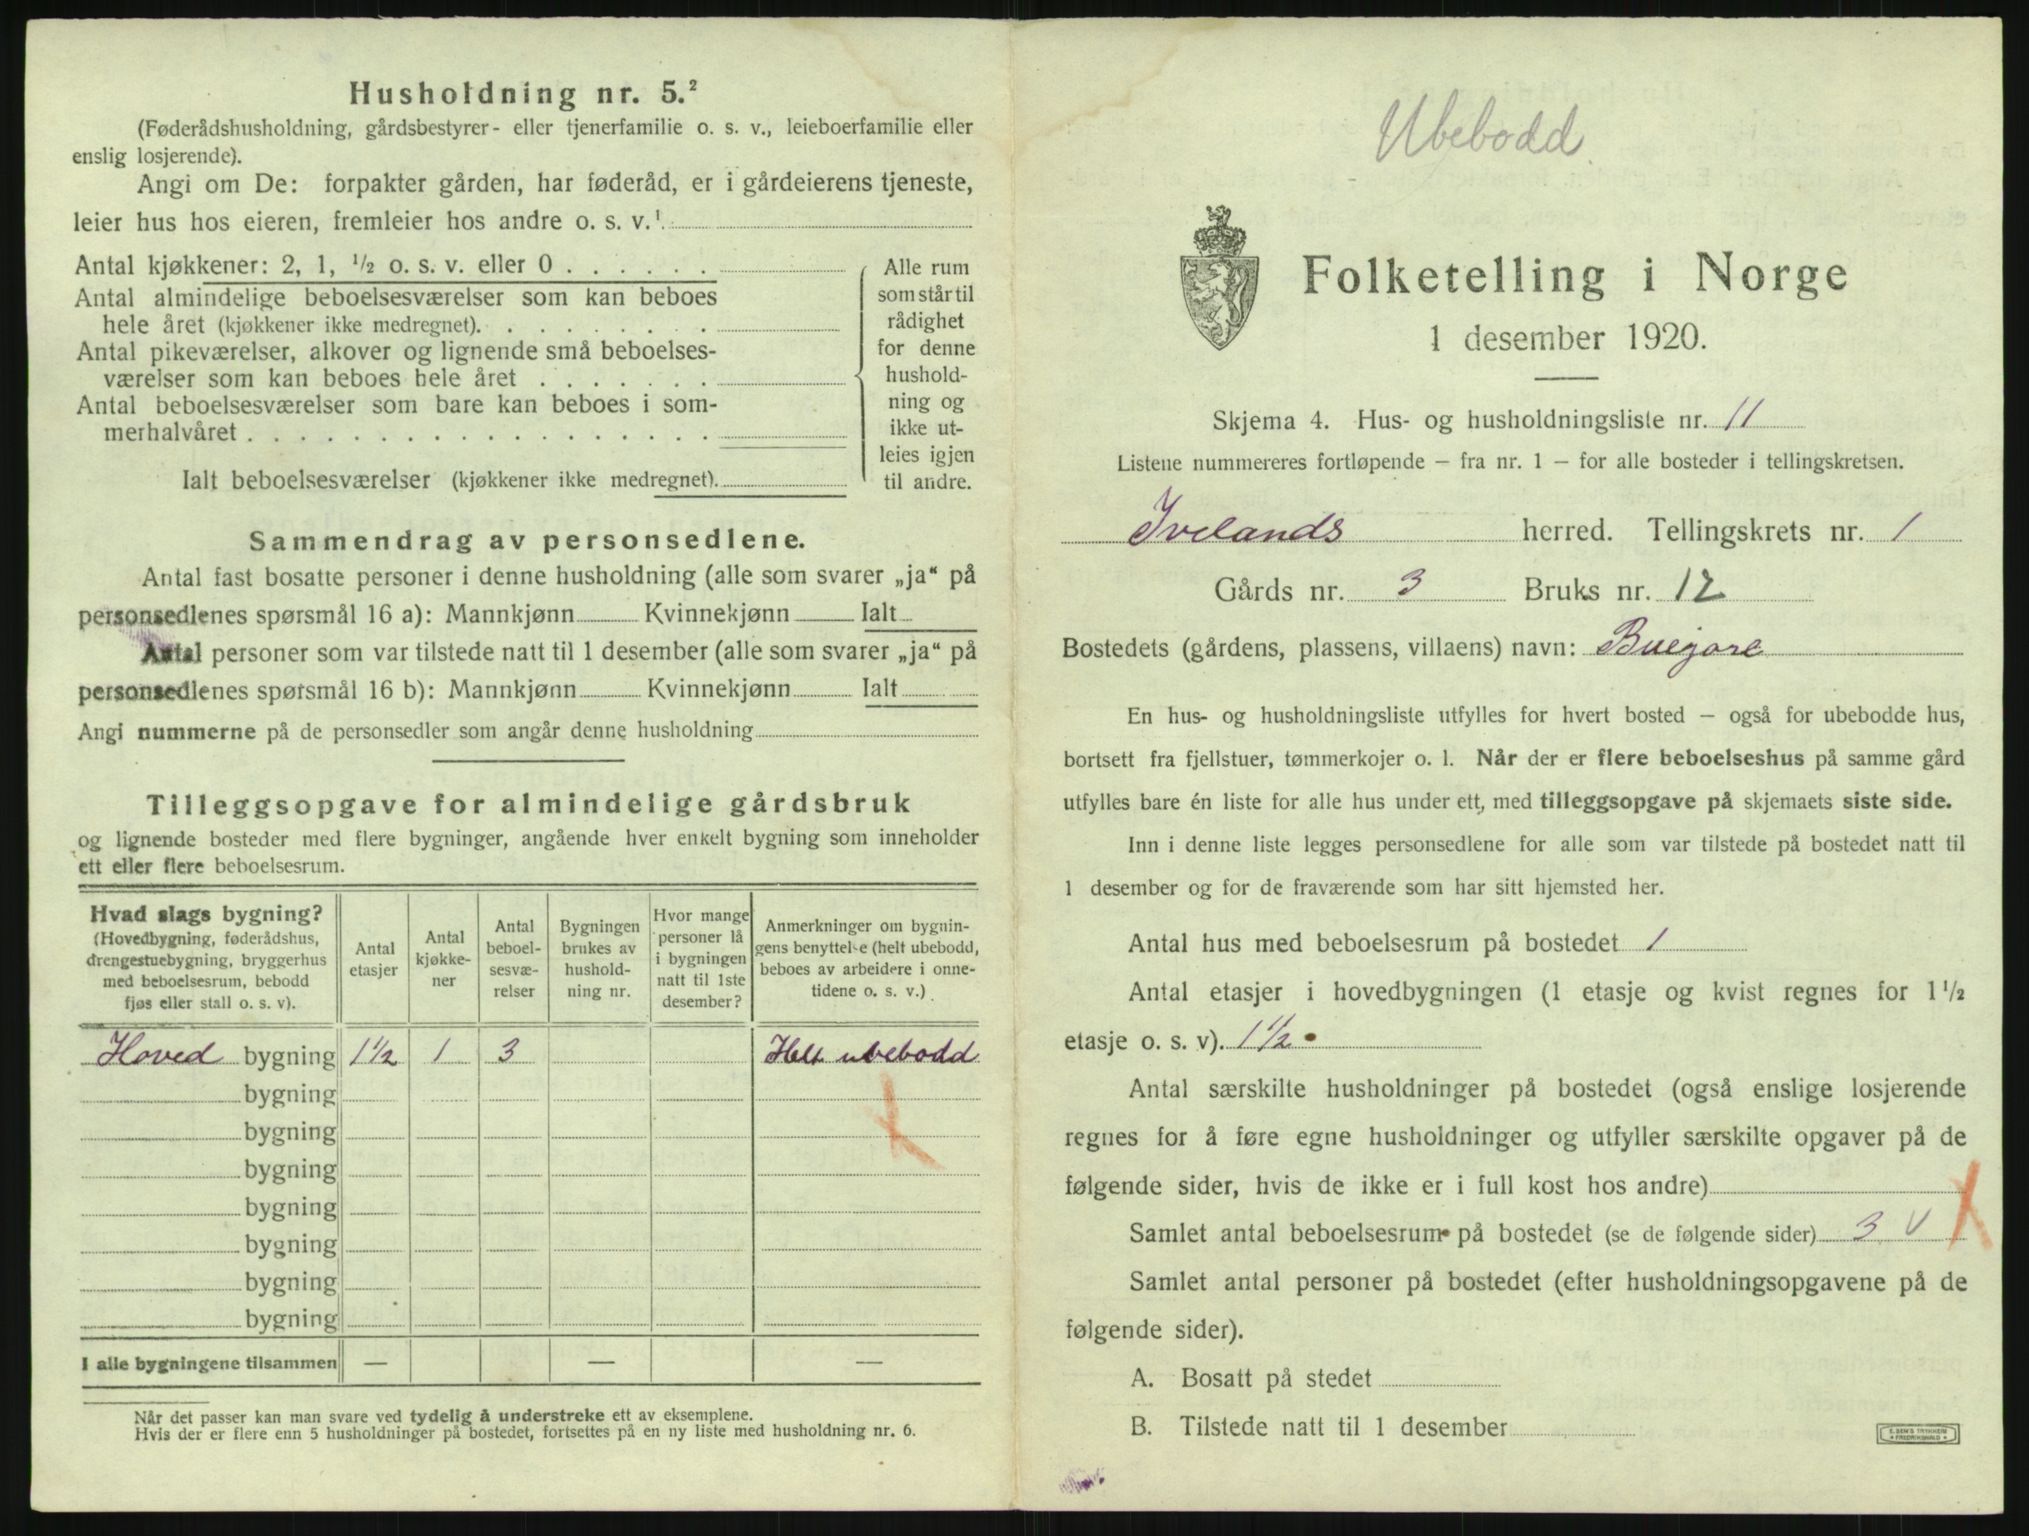 Husholdning nr. 5.²
(Føderådshusholdning, gårdsbestyrer- eller tjenerfamilie o. s. v., leieboerfamilie eller
enslig losjerende).
Angi om De: forpakter gården, har føderåd, er i gårdeierens tjeneste,
leier hus hos eieren, fremleier hos andre o. s. v.¹
Antal kjøkkener: 2, 1, ½ o. s. v. eller 0 . . . . . .
Antal almindelige beboelsesværelser som kan beboes
hele året (kjøkkener ikke medregnet). . . . . . . . .
Antal pikeværelser, alkover og lignende små beboelses-
værelser som kan beboes hele året . . . . . . .
Antal beboelsesværelser som bare kan beboes i som-
merhalvåret . . . . . . . . . . . . . . . . . .
Ialt beboelsesværelser (kjøkkener ikke medregnet).
Alle rum
som står til
rådighet
for denne
hushold-
ning og
ikke ut-
leies igjen
til andre.
Sammendrag av personsedlene.
Antal fast bosatte personer i denne husholdning (alle som svarer „ja“ på
personsedlenes spørsmål 16 a): Mannkjønn Kvinnekjønn Ialt
Antal personer som var tilstede natt til 1 desember (alle som svarer „ja“ på
personsedlenes spørsmål 16 b): Mannkjønn Kvinnekjønn Ialt
Angi nummerne på de personsedler som angår denne husholdning
Tilleggsopgave for almindelige gårdsbruk
og lignende bosteder med flere bygninger, angående hver enkelt bygning som inneholder
ett eller flere beboelsesrum.
Hvad slags bygning?
(Hovedbygning, føderådshus,
drengestuebygning, bryggerhus
med beboelsesrum, bebodd
fjøs eller stall o. s. v).
Antal
etasjer
Antal
kjøkke-
ner
Antal
beboel-
sesvæ-
relser
Bygningen
brukes av
hushold-
ning nr.
Hvor mange
personer lå
i bygningen
natt til 1ste
desember?
Anmerkninger om bygnin-
gens benyttelse (helt ubebodd,
beboes av arbeidere i onne-
tidene o. s. v.)
Hoved bygning 1½ 1 3 Helt ubebodd
bygning
bygning
bygning
bygning
bygning
bygning
bygning
I alle bygningene tilsammen — — —
Når det passer kan man svare ved tydelig å understreke ett av eksemplene.
Hvis der er flere enn 5 husholdninger på bostedet, fortsettes på en ny liste med husholdning nr. 6.
Ubebodd.
Folketelling i Norge
1 desember 1920.
Skjema 4. Hus- og husholdningsliste nr. 11
Listene nummereres fortløpende – fra nr. 1 – for alle bosteder i tellingskretsen.
Ivelands herred. Tellingskrets nr. 1
Gårds nr. 3 Bruks nr. 12
Bostedets (gårdens, plassens, villaens) navn: Buejore
En hus- og husholdningsliste utfylles for hvert bosted – også for ubebodde hus,
bortsett fra fjellstuer, tømmerkojer o. l. Når der er flere beboelseshus på samme gård
utfylles bare én liste for alle hus under ett, med tilleggsopgave på skjemaets siste side.
Inn i denne liste legges personsedlene for alle som var tilstede på bostedet natt til
1 desember og for de fraværende som har sitt hjemsted her.
Antal hus med beboelsesrum på bostedet 1
Antal etasjer i hovedbygningen (1 etasje og kvist regnes for 1½
etasje o. s. v). 1½
Antal særskilte husholdninger på bostedet (også enslige losjerende
regnes for å føre egne husholdninger og utfyller særskilte opgaver på de
følgende sider, hvis de ikke er i full kost hos andre)
Samlet antal beboelsesrum på bostedet (se de følgende sider) 3 V
Samlet antal personer på bostedet (efter husholdningsopgavene på de
følgende sider).
A. Bosatt på stedet
B. Tilstede natt til 1 desember